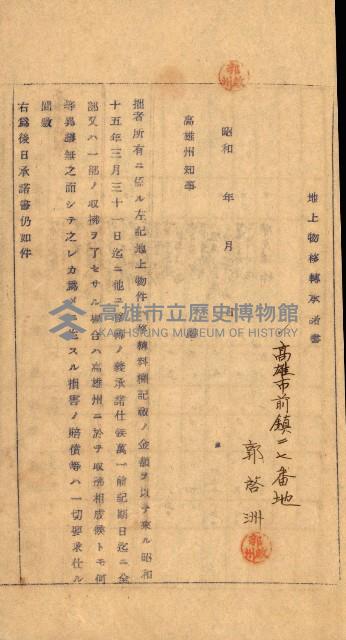 地上物移轉承諾書
高雄市前鎮二七番地
郭啓洲
昭和 年 月 日
高雄州知事 殿
拙者所有ニ係ル左記地上物件ハ移轉料欄記載ノ金額ヲ以テ來ル昭和
十五年三月三十一日迄ニ他ニ移轉ノ義承諾仕候萬一前記期日迄ニ全
部又ハ一部ノ收拂ヲ了セサル場合ハ高雄州ニ於テ取拂相成候トモ何
等異議無之而シテ之レカ爲メニ生スル損害ノ賠償等ハ一切要求仕ル
間敷
右爲後日承諾書仍如件
高雄市立歷史博物館
KAOHSIUNG MUSEUM OF HISTORY